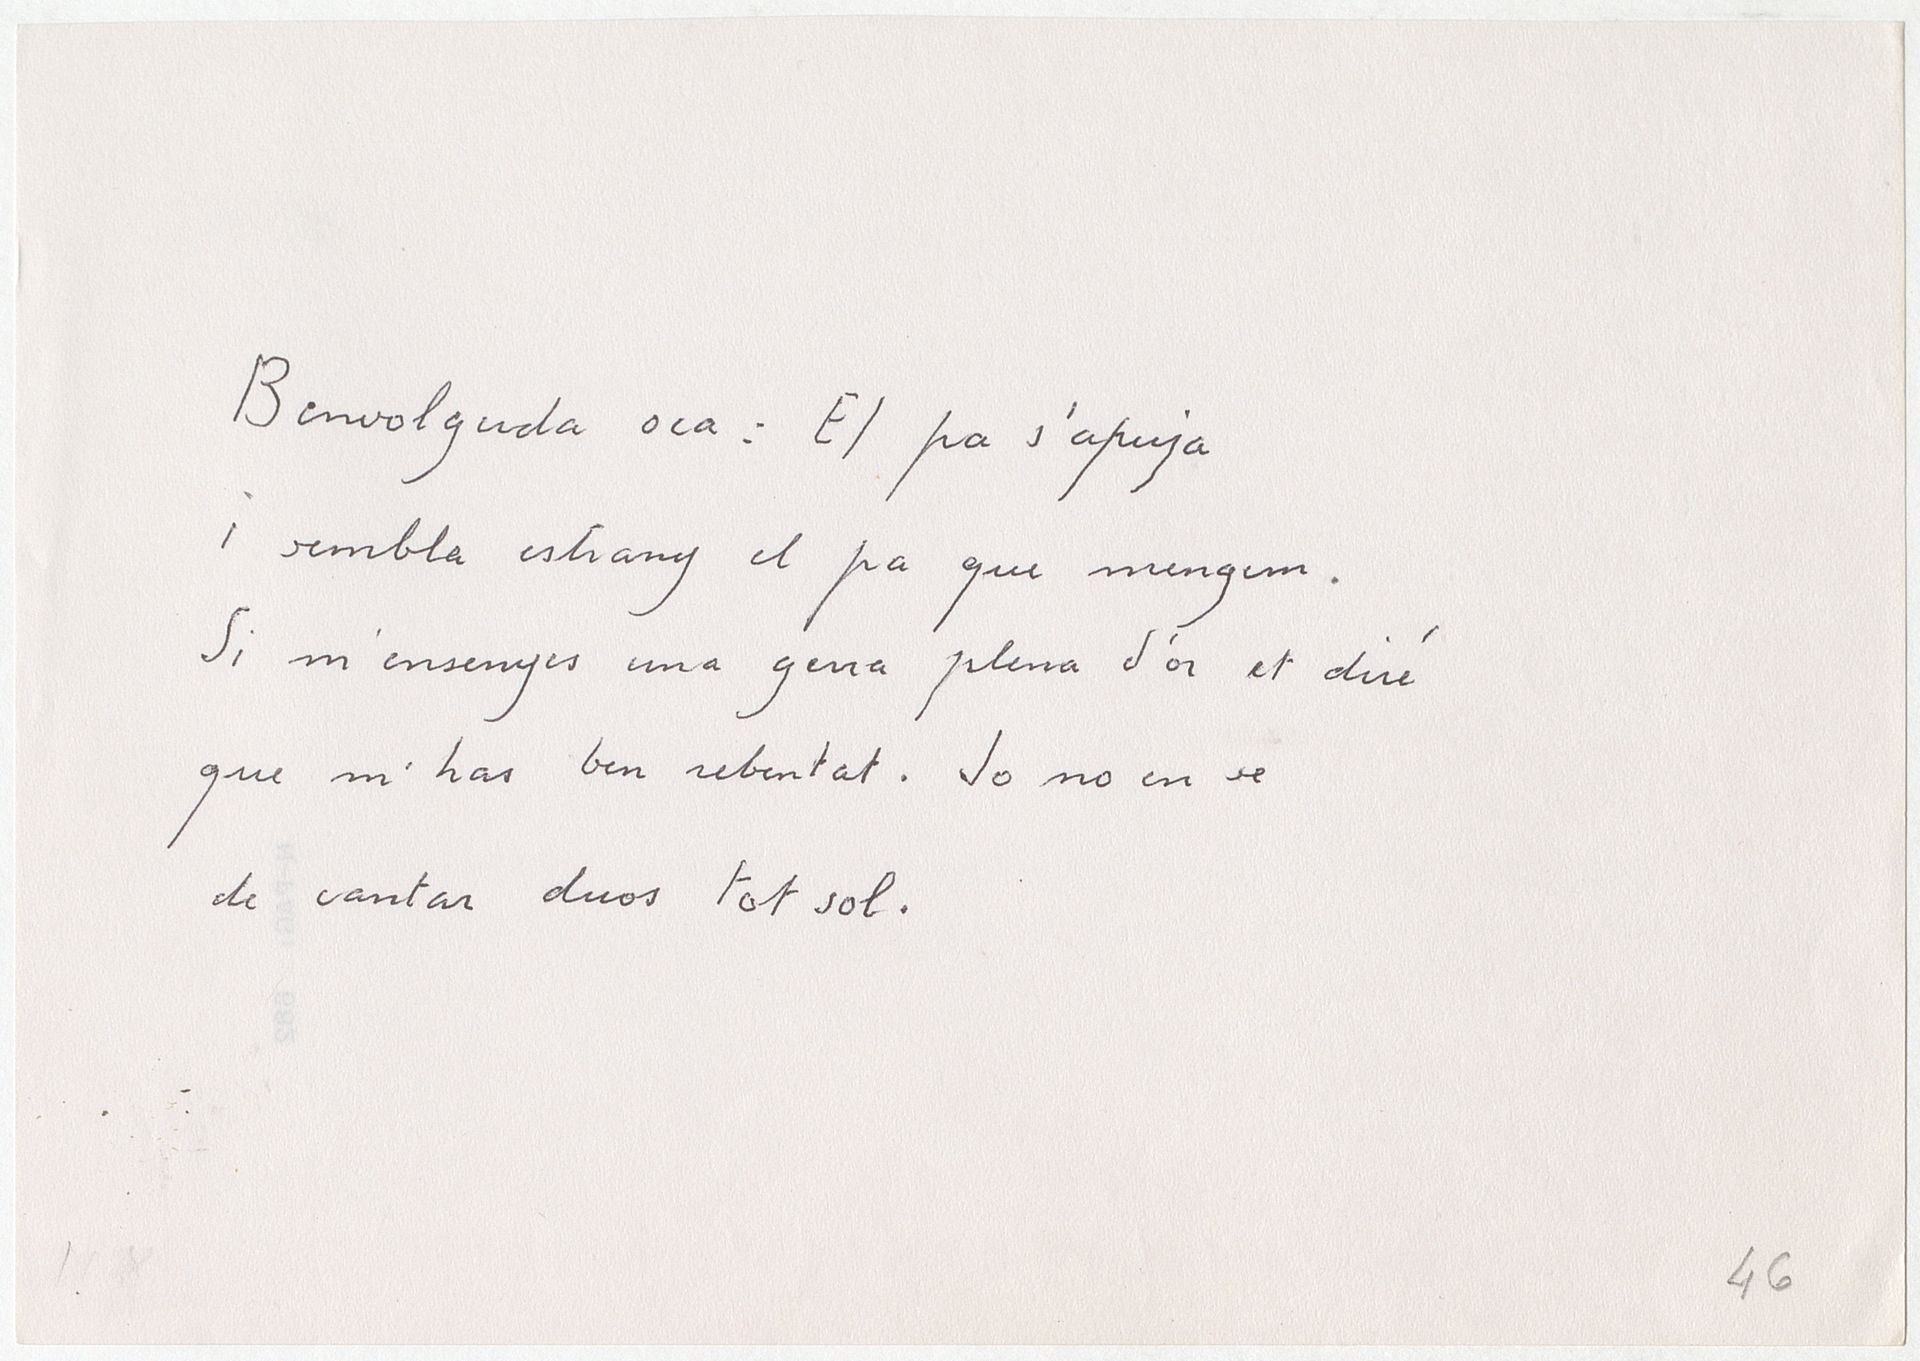 Benvolguda oca: El pa s'apuja
i sembla estrany el pa que mengem.
Si m'ensenyes una gerra plena d'or et diré
que m'has ben rebentat. Jo no en se
de cantar duos tot sol.
46